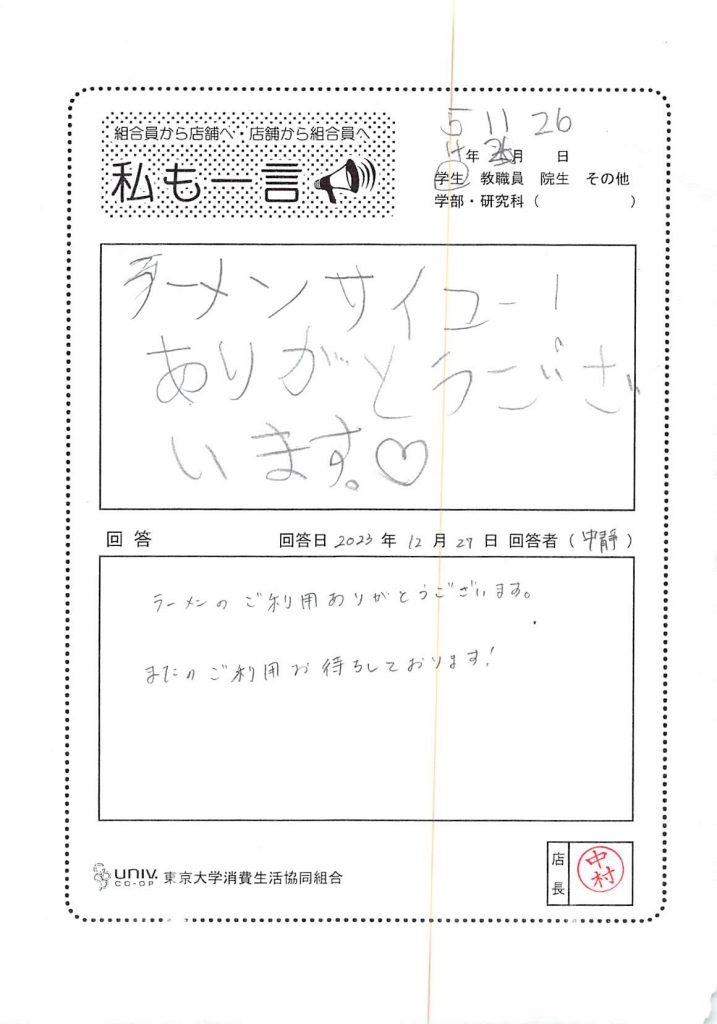 組合員から店舗へ・店舗から組合員へ
私も一言
5 11 26
年 月 日
学生 教職員 院生 その他
学部・研究科（ ）
ラーメンサイコー！
ありがとうござ
います。♡
回答 回答日 2023 年 12 月 27 日 回答者（中静）
ラーメンのご利用ありがとうございます。
またのご利用お待ちしております！
店長
中村
UNIV.
CO-OP
東京大学消費生活協同組合